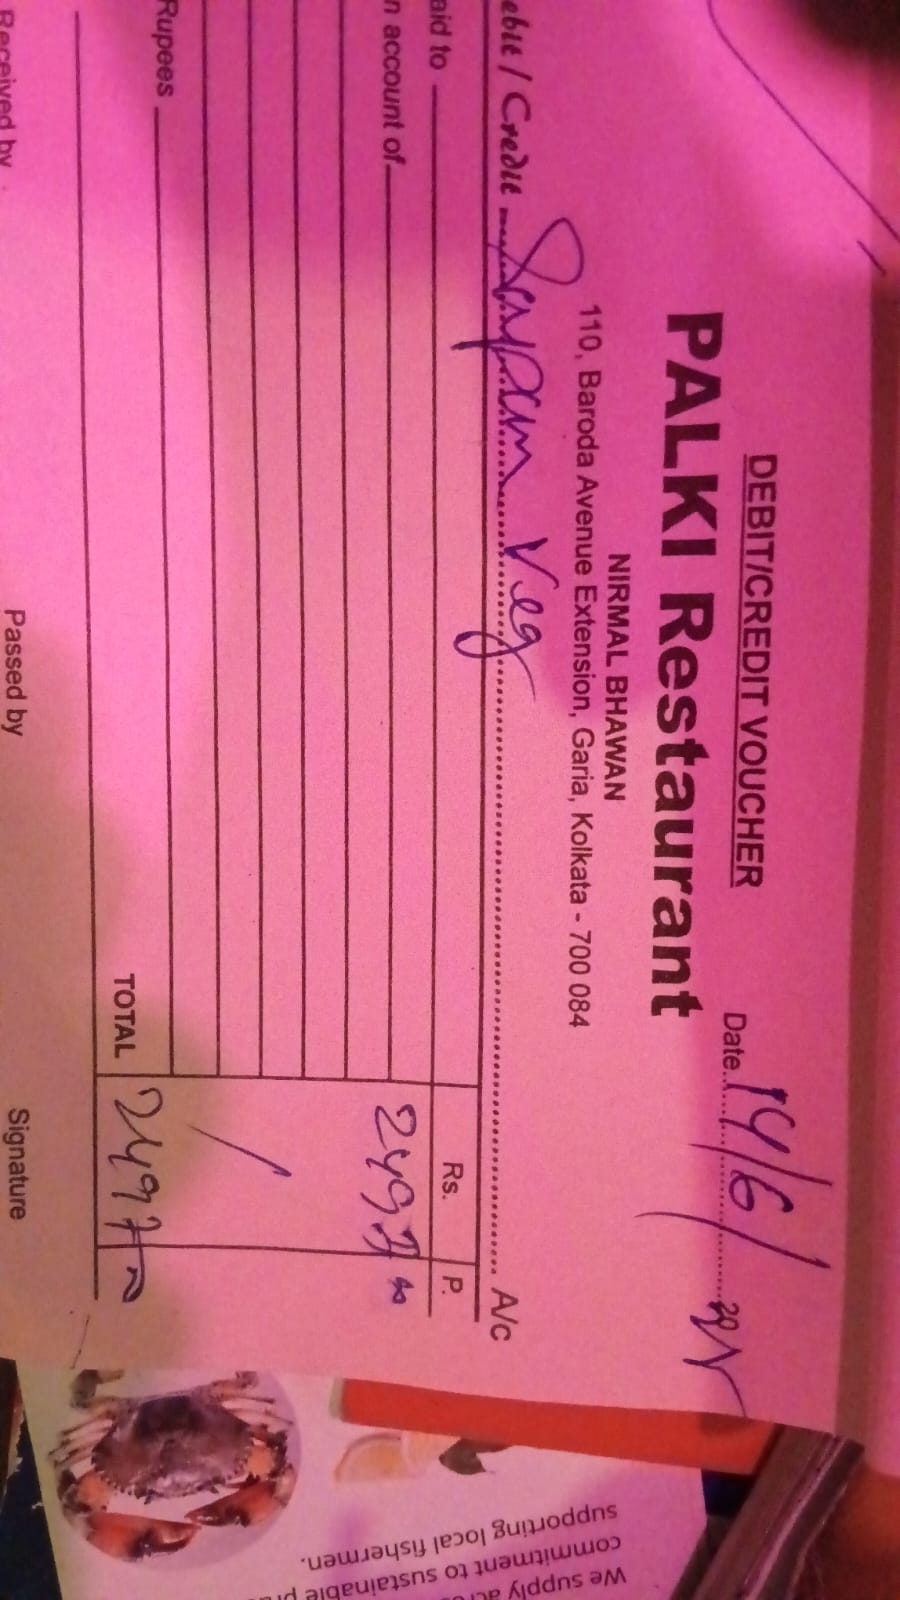 DEBIT/CREDIT VOUCHER
PALKI Restaurant
Date 14/6/ 20
NIRMAL BHAWAN
110, Baroda Avenue Extension, Garia, Kolkata - 700 084
ebit / Credit Veg A/c
aid to Rs. P.
n account of 2497
Rupees
TOTAL 2497
Received by Passed by Signature
We supply
commitment to sustainable
supporting local fishermen.